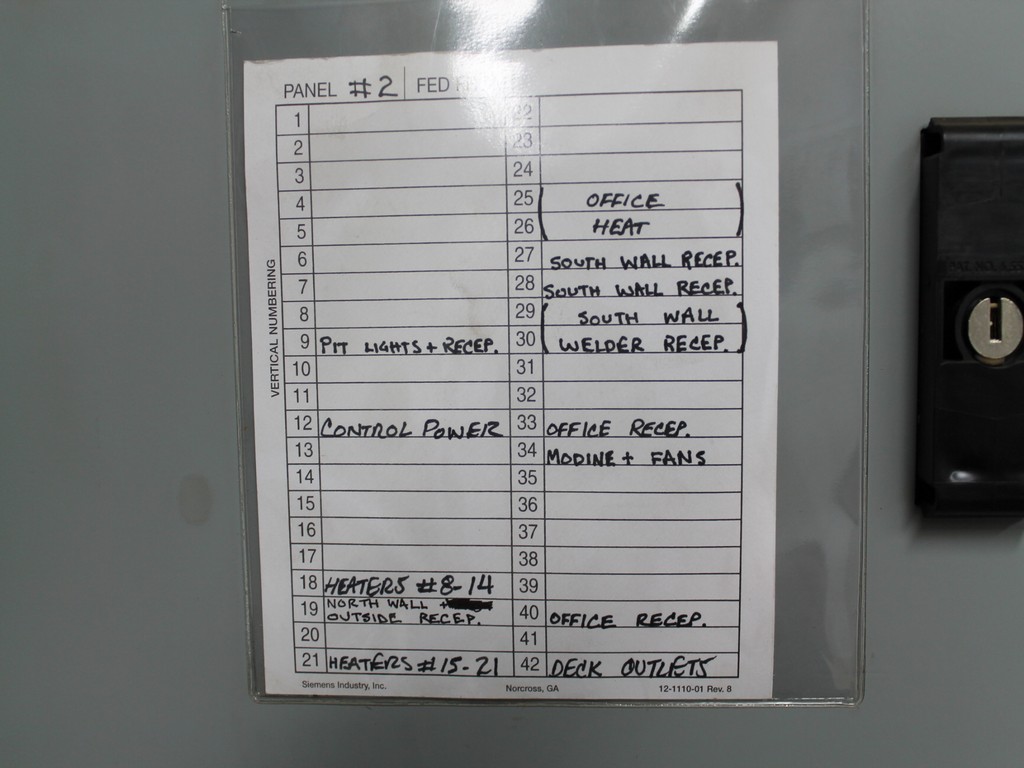 PANEL #2 FED
VERTICAL NUMBERING
1
2
3
4
5
6
7
8
9 PIT LIGHTS + RECEP.
10
11
12 CONTROL POWER
13
14
15
16
17
18 HEATERS #8-14
19 NORTH WALL +
OUTSIDE RECEP.
20
21 HEATERS #15-21
22
23
24
25 OFFICE
26 HEAT
27 SOUTH WALL RECEP.
28 SOUTH WALL RECEP.
29 SOUTH WALL
30 WELDER RECEP.
31
32
33 OFFICE RECEP.
34 MODINE + FANS
35
36
37
38
39
40 OFFICE RECEP.
41
42 DECK OUTLETS
Siemens Industry, Inc. Norcross, GA 12-1110-01 Rev. 8